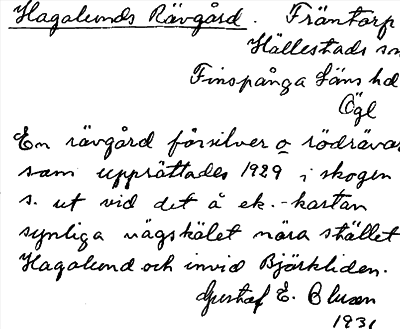 Hagalunds Rävgård. Fräntorp
Hällestads sn
Finspånga Läns hd
Ögl
En rävgård för silver o rödrävar
som upprättades 1929 i skogen
s. ut vid det å ek.-kartan
synliga vägskälet nära stället
Hagalund och invid Björkliden.
Gustaf E. Bluson
1931